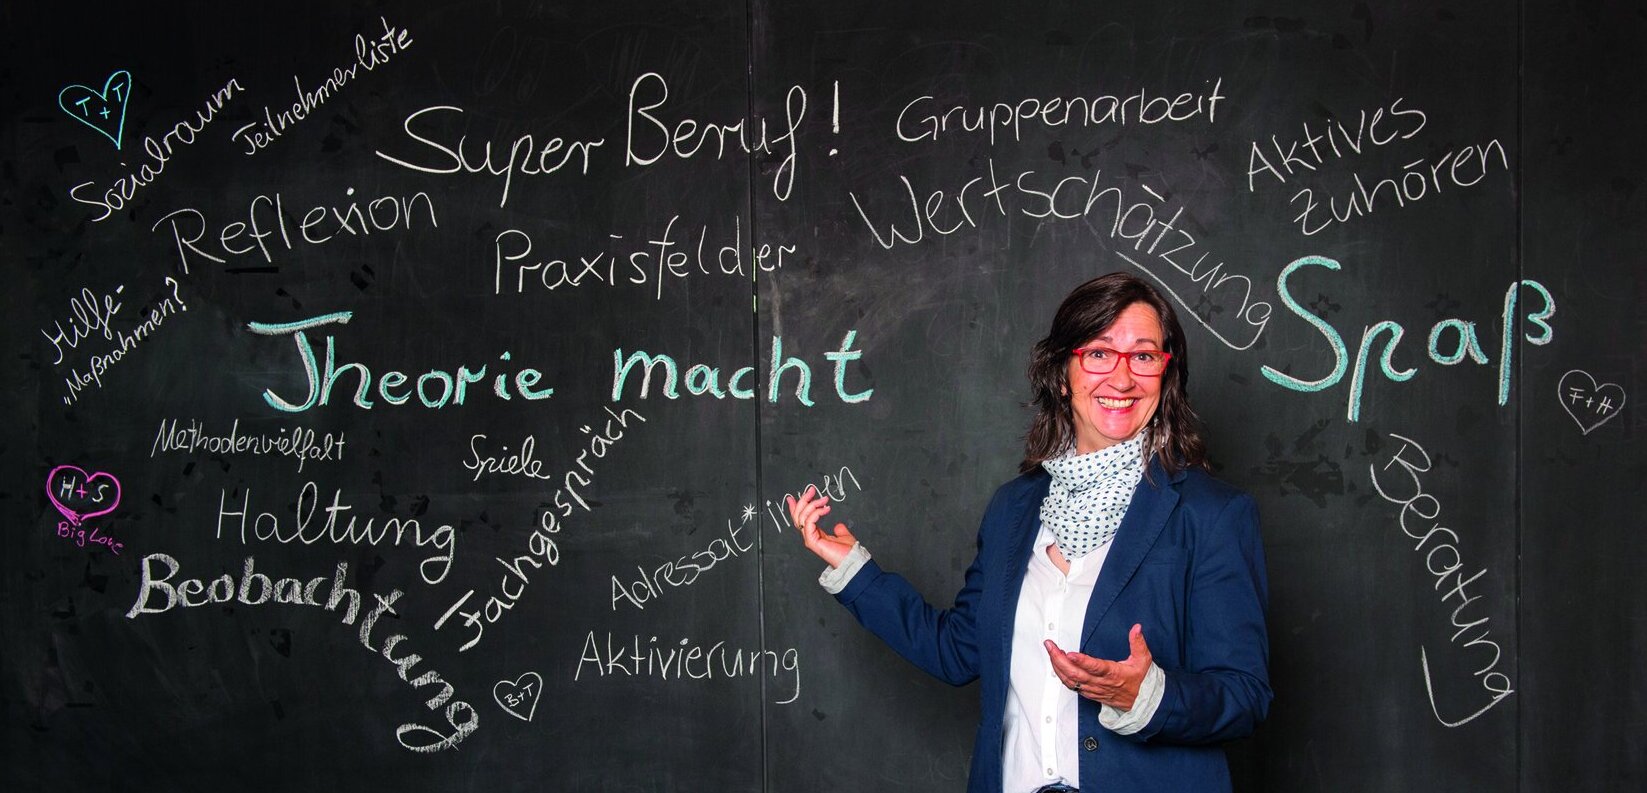 T+T
Sozialraum
Teilnehmerliste
Super Beruf!
Gruppenarbeit
Aktives
Zuhören
Reflexion
Praxisfelder
Wertschätzung
Hilfe-
"Maßnahmen?
Theorie macht Spaß
F+H
Methodenvielfalt
Spiele
Fachgespräch
H+S
Big Love
Haltung
Adressat*innen
Beratung
Beobachtung
Aktivierung
B+T